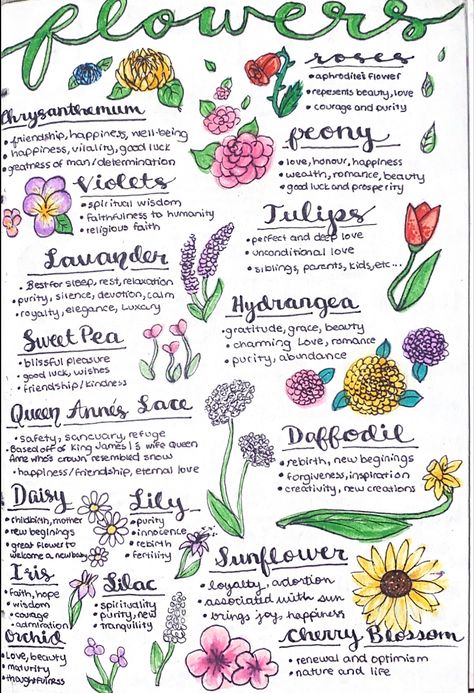 flowers
roses
• aphrodite's flower
• repesents beauty, love
• courage and purity
Chrysanthemum
• friendship, happiness, well-being
• happiness, vitality, good luck
• greatness of man/determination
peony
• love, honour, happiness
• wealth, romance, beauty
• good luck and prosperity
Violets
• spiritual wisdom
• faithfulness to humanity
• religious faith
Tulips
• perfect and deep love
• unconditional love
• siblings, parents, kids, etc...
Lavander
• Best for sleep, rest, relaxation
• purity, silence, devotion, calm
• royalty, elegance, Luxary
Hydrangea
• gratitude, grace, beauty
• charming Love, romance
• purity, abundance
Sweet Pea
• blissful pleasure
• good luck, wishes
• friendship/kindness
Queen Anne's Lace
• safety, sancuary, refuge
• Based off of King James I's wife Queen
Anne who's crown resembled snow
• happiness/friendship, eternal love
Daffodil
• rebirth, new beginings
• forgiveness, inspiration
• creativity, new creations
Daisy
• childbirth, mother
• new beginings
• great flower to
welcome a new baby
Lily
• purity
• innocence
• rebirth
• fertility
Sunflower
• loyalty, adortion
• associated with sun
• brings joy, happiness
Iris
• faith, hope
• wisdom
• courage
• admiration
Lilac
• spirituality
• purity, new
• tranquility
Cherry Blossom
• renewal and optimism
• nature and life
Orchid
• Love, beauty
• maturity
• thoughtfulness